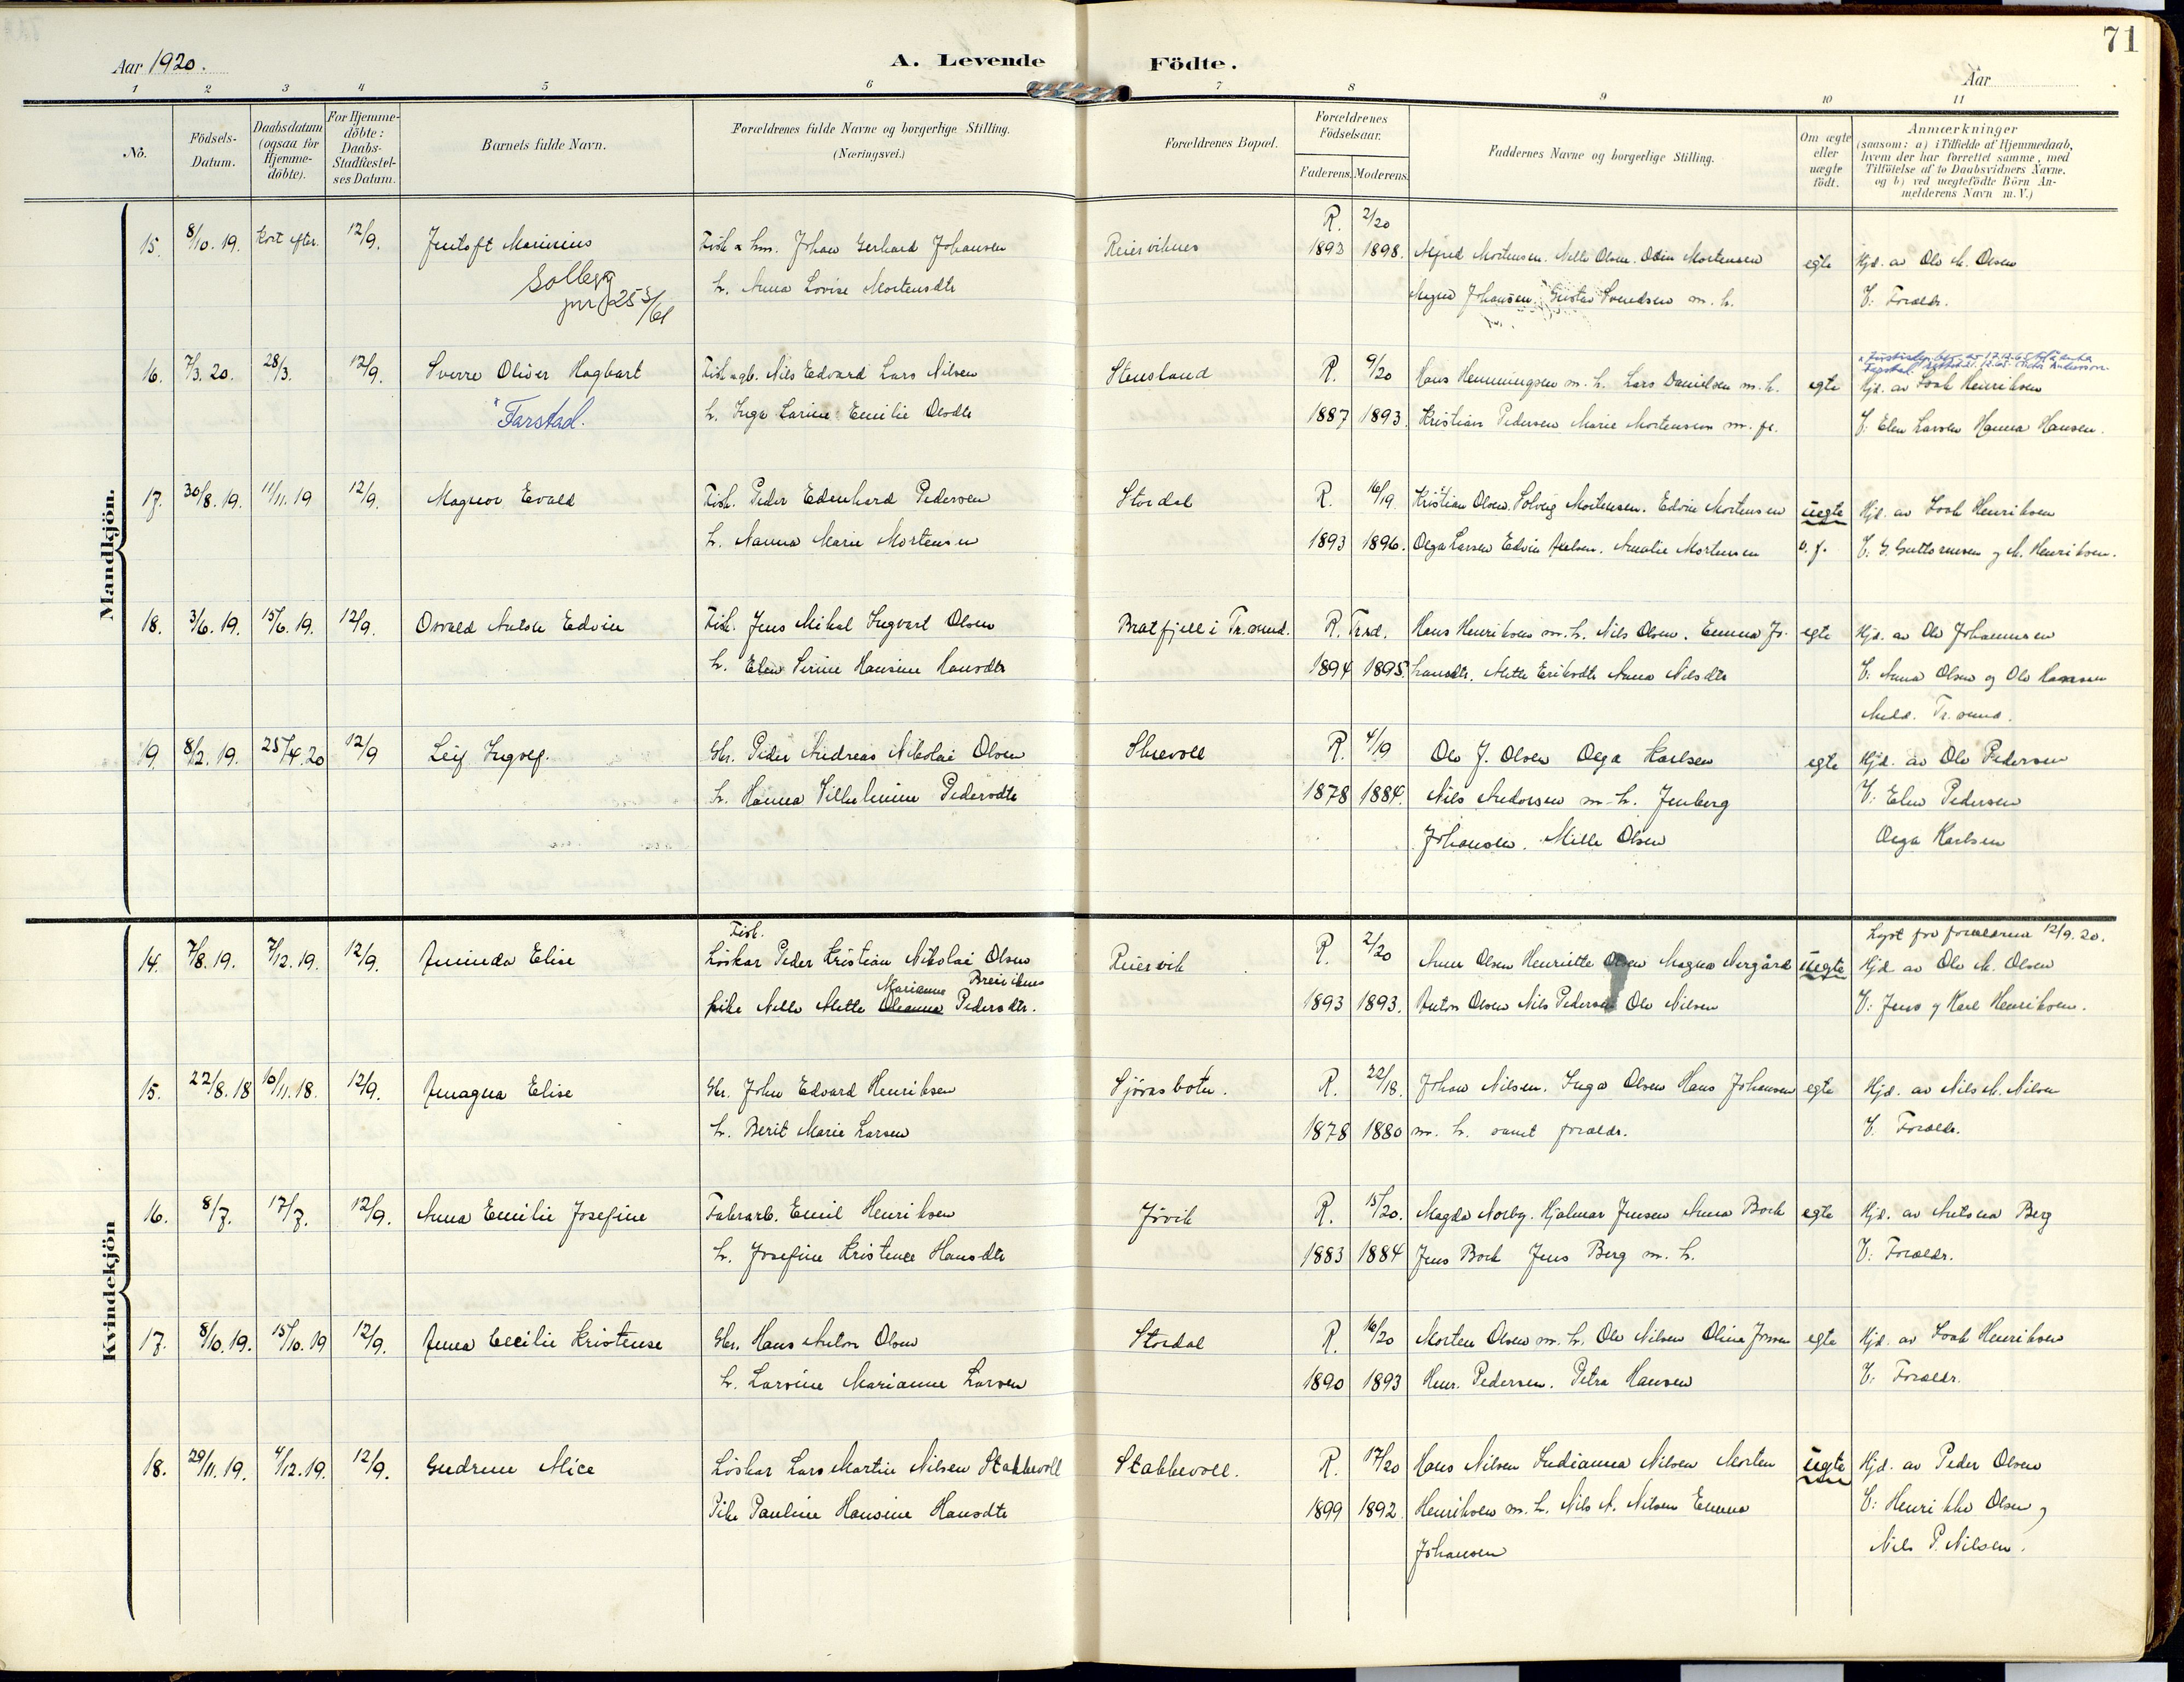 71
Aar 1920.
A. Levende Födte.
Aar
1 2 3 4 5 6 7 8 9 10 11
No.
Födsels-Datum.
Daabsdatum (ogsaa for Hjemme-döbte).
For Hjemme-döbte: Daabs-Stadfæstel-ses Datum.
Barnets fulde Navn.
Forældrenes fulde Navne og borgerlige Stilling.
(Næringsvei.)
Forældrenes Bopæl.
Forældrenes Födselsaar.
Faderens. Moderens.
Faddernes Navne og borgerlige Stilling.
Om ægte eller uægte födt.
Anmærkninger
(saasom: a) i Tilfælde af Hjemmedaab, hvem der har forrettet samme, med Tilföielse af to Daabsvidners Navne. og b) ved uægtefödte Börn An-melderens Navn m. V.)
Mandkjön.
15. 8/10. 19. kort efter. 12/9. Jentoft Marinius Fisk. Johan Gerhard Johansen Reierviknes R. 2/20
1893 1898. Alfred Mortensen. Nelle Olsen. Odin Mortensen egte Hjd. av Ole M. Olsen
Solberg h. Anna Lovise Mortensdtr Johansen. Gustav Svendsen m. h. V: Forældr.
16. 7/3. 20. 28/3. 12/9. Sverre Oliver Hagbart Nils Edvard Lars Nilsen Stensland R. 9/20 Hans Henningsen m. h. Lars Danielsen m. h. egte Hjd. av Isak Henriksen
Farstad. h. Inga Larine Emilie Olsdtr 1887 1893. Kristian Pedersen Marie Mortensen V: Elen Larsen Hanna Hansen.
17. 30/8. 19. 11/11. 19 12/9. Magnor Evald Fisk. Peder Edenhard Pedersen Stordal R. 16/19. Kristian Olsen. Solveig Mortensen. Edvin Mortensen uegte Hjd. av Isak Henriksen
h. Nanna Marie Mortensen 1893 1896. Olga Larsen Edvin Amalie Mortensen V. Guttormsen og M. Henriksen.
18. 3/6. 19. 15/6. 19. 12/9. Osvald Anton Edvin Fisk. Jens Mikal Ingvart Olsen Bratfjell i Tr.sund. R. Tr.sd. Hans Henriksen m. h. Nils Olsen. Emma Jo- egte Hjd. av Ole Johannesen
h. Elen Serine Hansine Hansdtr 1894 1895. hansdtr. Mette Eriksdtr Anna Nilsdtr V: Anna Olsen og Ole Hansen
Meld. Tr.sund.
19. 8/2. 19. 25/4. 20 12/9 Leif Ingolf. Gbr. Peder Andreas Nikolai Olsen R. 4/19 Ole J. Olsen Olga Karlsen egte Hjd. av Ole Pedersen
h. Hanna Vilhelmine Pedersdtr 1878 1884. Nils Andorsen m. h. Jenberg V: Elen Pedersen
Johansen. Mille Olsen Olga Karlsen
Kvindekjön
Fisk. Lyst fra 12/9. 20.
14. 7/8. 19. 7/12. 19. 12/9. Aminda Elise Löskar Peder Kristian Nikolai Olsen Reiervik R. 2/20 Anna Olsen Henriette Olsen Magna Nergård uegte Hjd. av Ole M. Olsen
Marianna
Pike Nelle Mette Oleanna Pedersdtr. 1893 1893. Anton Olsen Nils Pedersen Ole Nilsen V: Jens og Karl Henriksen.
15. 22/8. 18 10/11. 18. 12/9. Amagna Elise Gbr. John Edvard Henriksen Sjöråsbotn. R. 22/18. Johan Nilsen. Inga Olsen Hans Johansen egte Hjd. av Nils M. Nilsen
h. Berit Marie Larsen 1878 1880 m. h. samt forældr. V. Forældr.
16. 8/7. 17/7. 12/9. Anna Emilie Josefine Fabrarb. Emil Henriksen Jövik R. 15/20. Magda Norby. Hjalmar Jensen Anna Bock egte Hjd. av Antona Berg
h. Josefine Kristence Hansdtr 1883 1884 Jens Bock Jens Berg m. h. V: Forældr.
17. 8/10. 19. 15/10. 19 12/9. Anna Cecilie Kristense Gbr. Hans Anton Olsen Stordal R. 16/20 Morten Olsen m. h. Ole Nilsen Olina egte Hjd. av Isak Henriksen
h. Larsine Marianne Larsen 1890 1893 Henr. Pedersen. Petra Hansen V: Forældr.
18. 29/11. 19. 4/12. 19. 12/9. Gudrun Alice Löskar Lars Martin Nilsen Stabbevoll Stabbevoll. R. 17/20 Hans Nilsen Indianna Nilsen Morten uegte Hjd. av Peder Olsen
Pike Pauline Hansine Hansdtr 1899 1892. Henriksen m. h. Nils A. Nilsen Emma V: Henrikke Olsen og
Johansen Nils P. Nilsen.